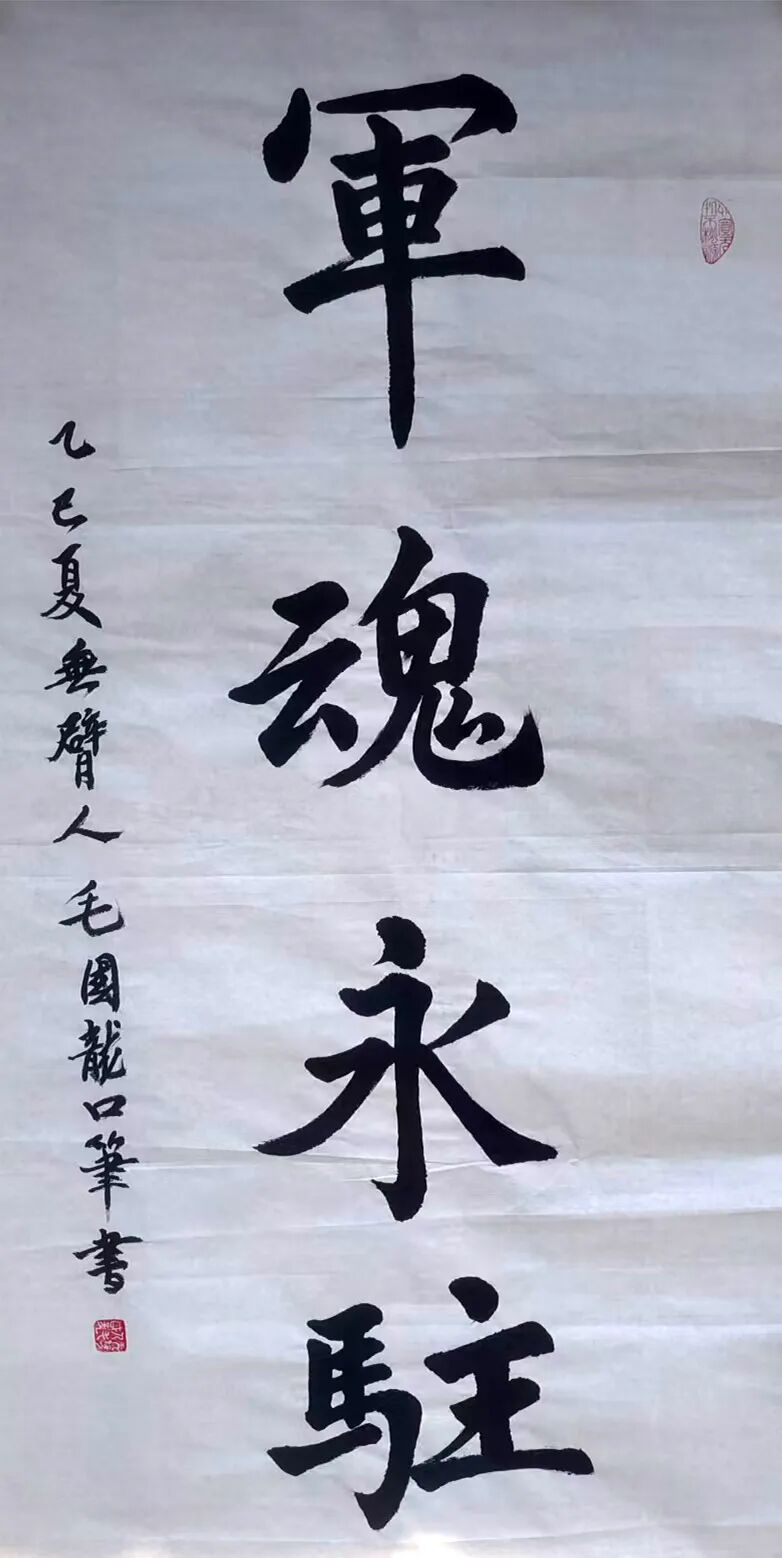 軍魂永駐
乙巳夏無臂人毛國龍口筆書